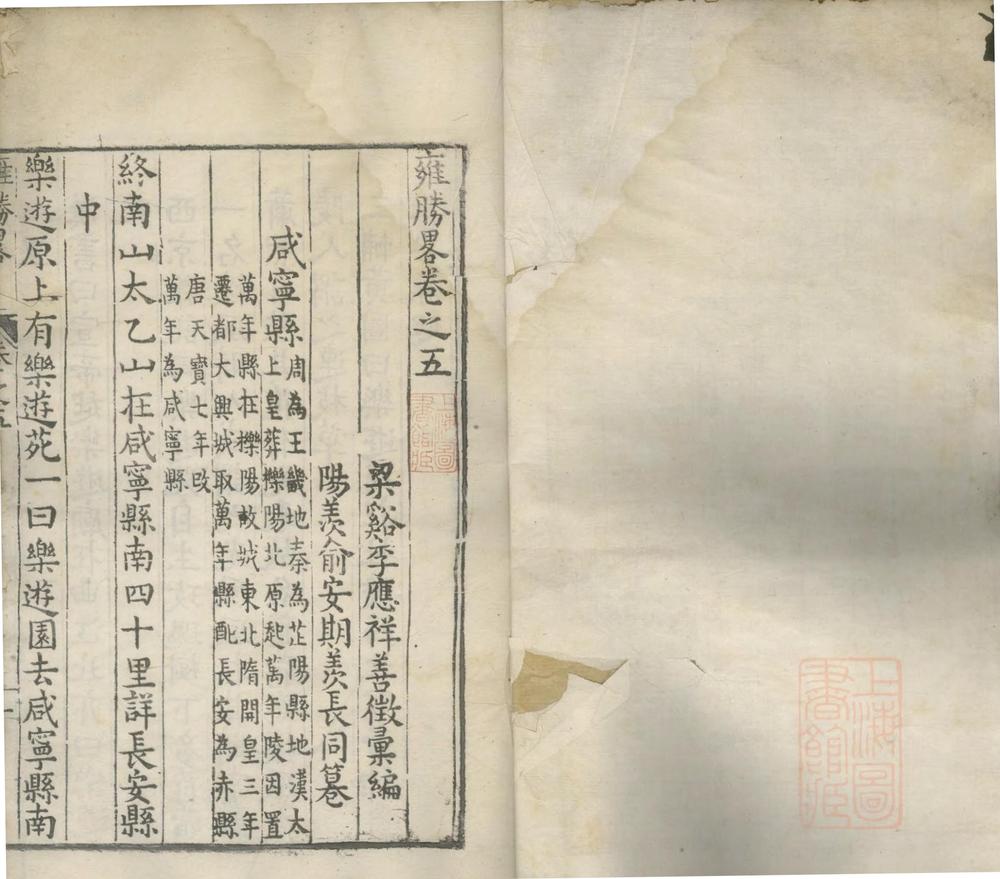 上海圖
書館藏
雍勝畧卷之五
上海圖
書館藏
梁谿李應祥善徵彙編
陽羨俞安期羨長同纂
咸寧縣
周為王畿地秦為芷陽縣地漢太
上皇葬櫟陽北原起萬年陵因置
萬年縣在櫟陽故城東北隋開皇三年
遷都大興城取萬年縣配長安為赤縣
唐天寶七年改
萬年為咸寧縣
終南山太乙山在咸寧縣南四十里詳長安縣
中
樂遊原上有樂遊苑一曰樂遊園去咸寧縣南
雍勝畧